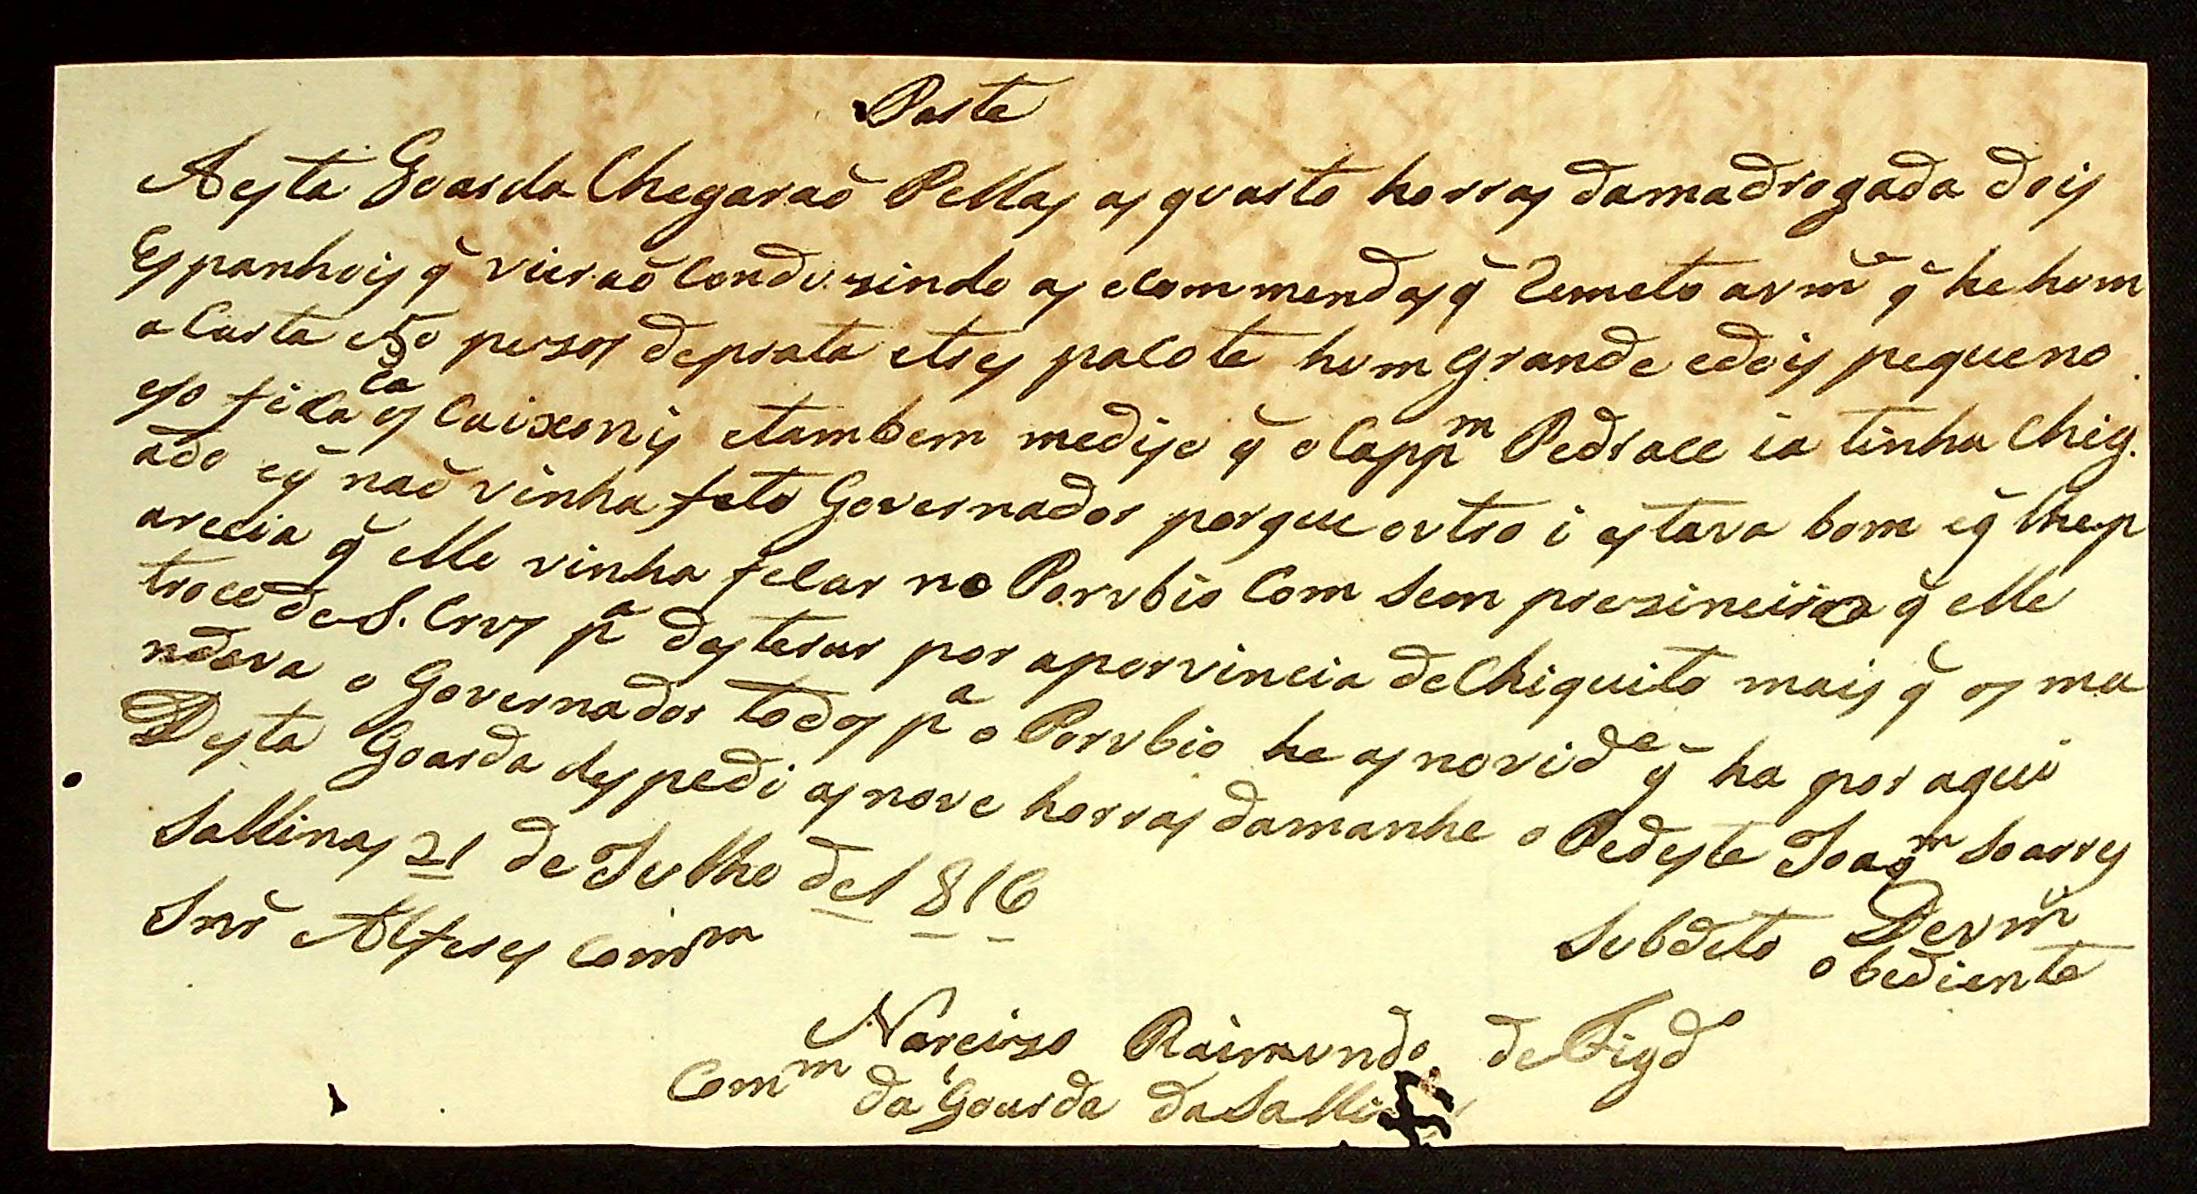 Parte
A esta Goarda Chegarão Pellas as quarto horras da madrogada dois
Espanhois q̃ vierão Conduzindo as ecommendas q̃ Remeto a vm.ce q̃ he hum
a Carta e pezos de prata e tres pacote hum Grande e dois pequeno
e so fica ca os Caixonis e tambem me dise q̃ o Capp.m Pedrace ia tinha Cheg.
ado e q̃ não vinha feto Governador porque outro i estava bom e q̃ lhe p
arecia q̃ elle vinha felar no Porubio Com Sem prezineiros q̃ elle
troce de S. Crus p.a desterar por a porvincia de Chiquito mais q̃ os ma
ndava o Governador todos p.a o Porubio he as novid.e q̃ ha por aqui
Desta Goarda despedi as nove horras da manhe o Pedeste Joaq.m Soarres
Sallinas 21 de Julho de 1816
Subdeto De vm.ce
obediente
Snr̃ Alferes Com.m
Narcizo Raimundo de Figd.o
Com.m da Gourda da